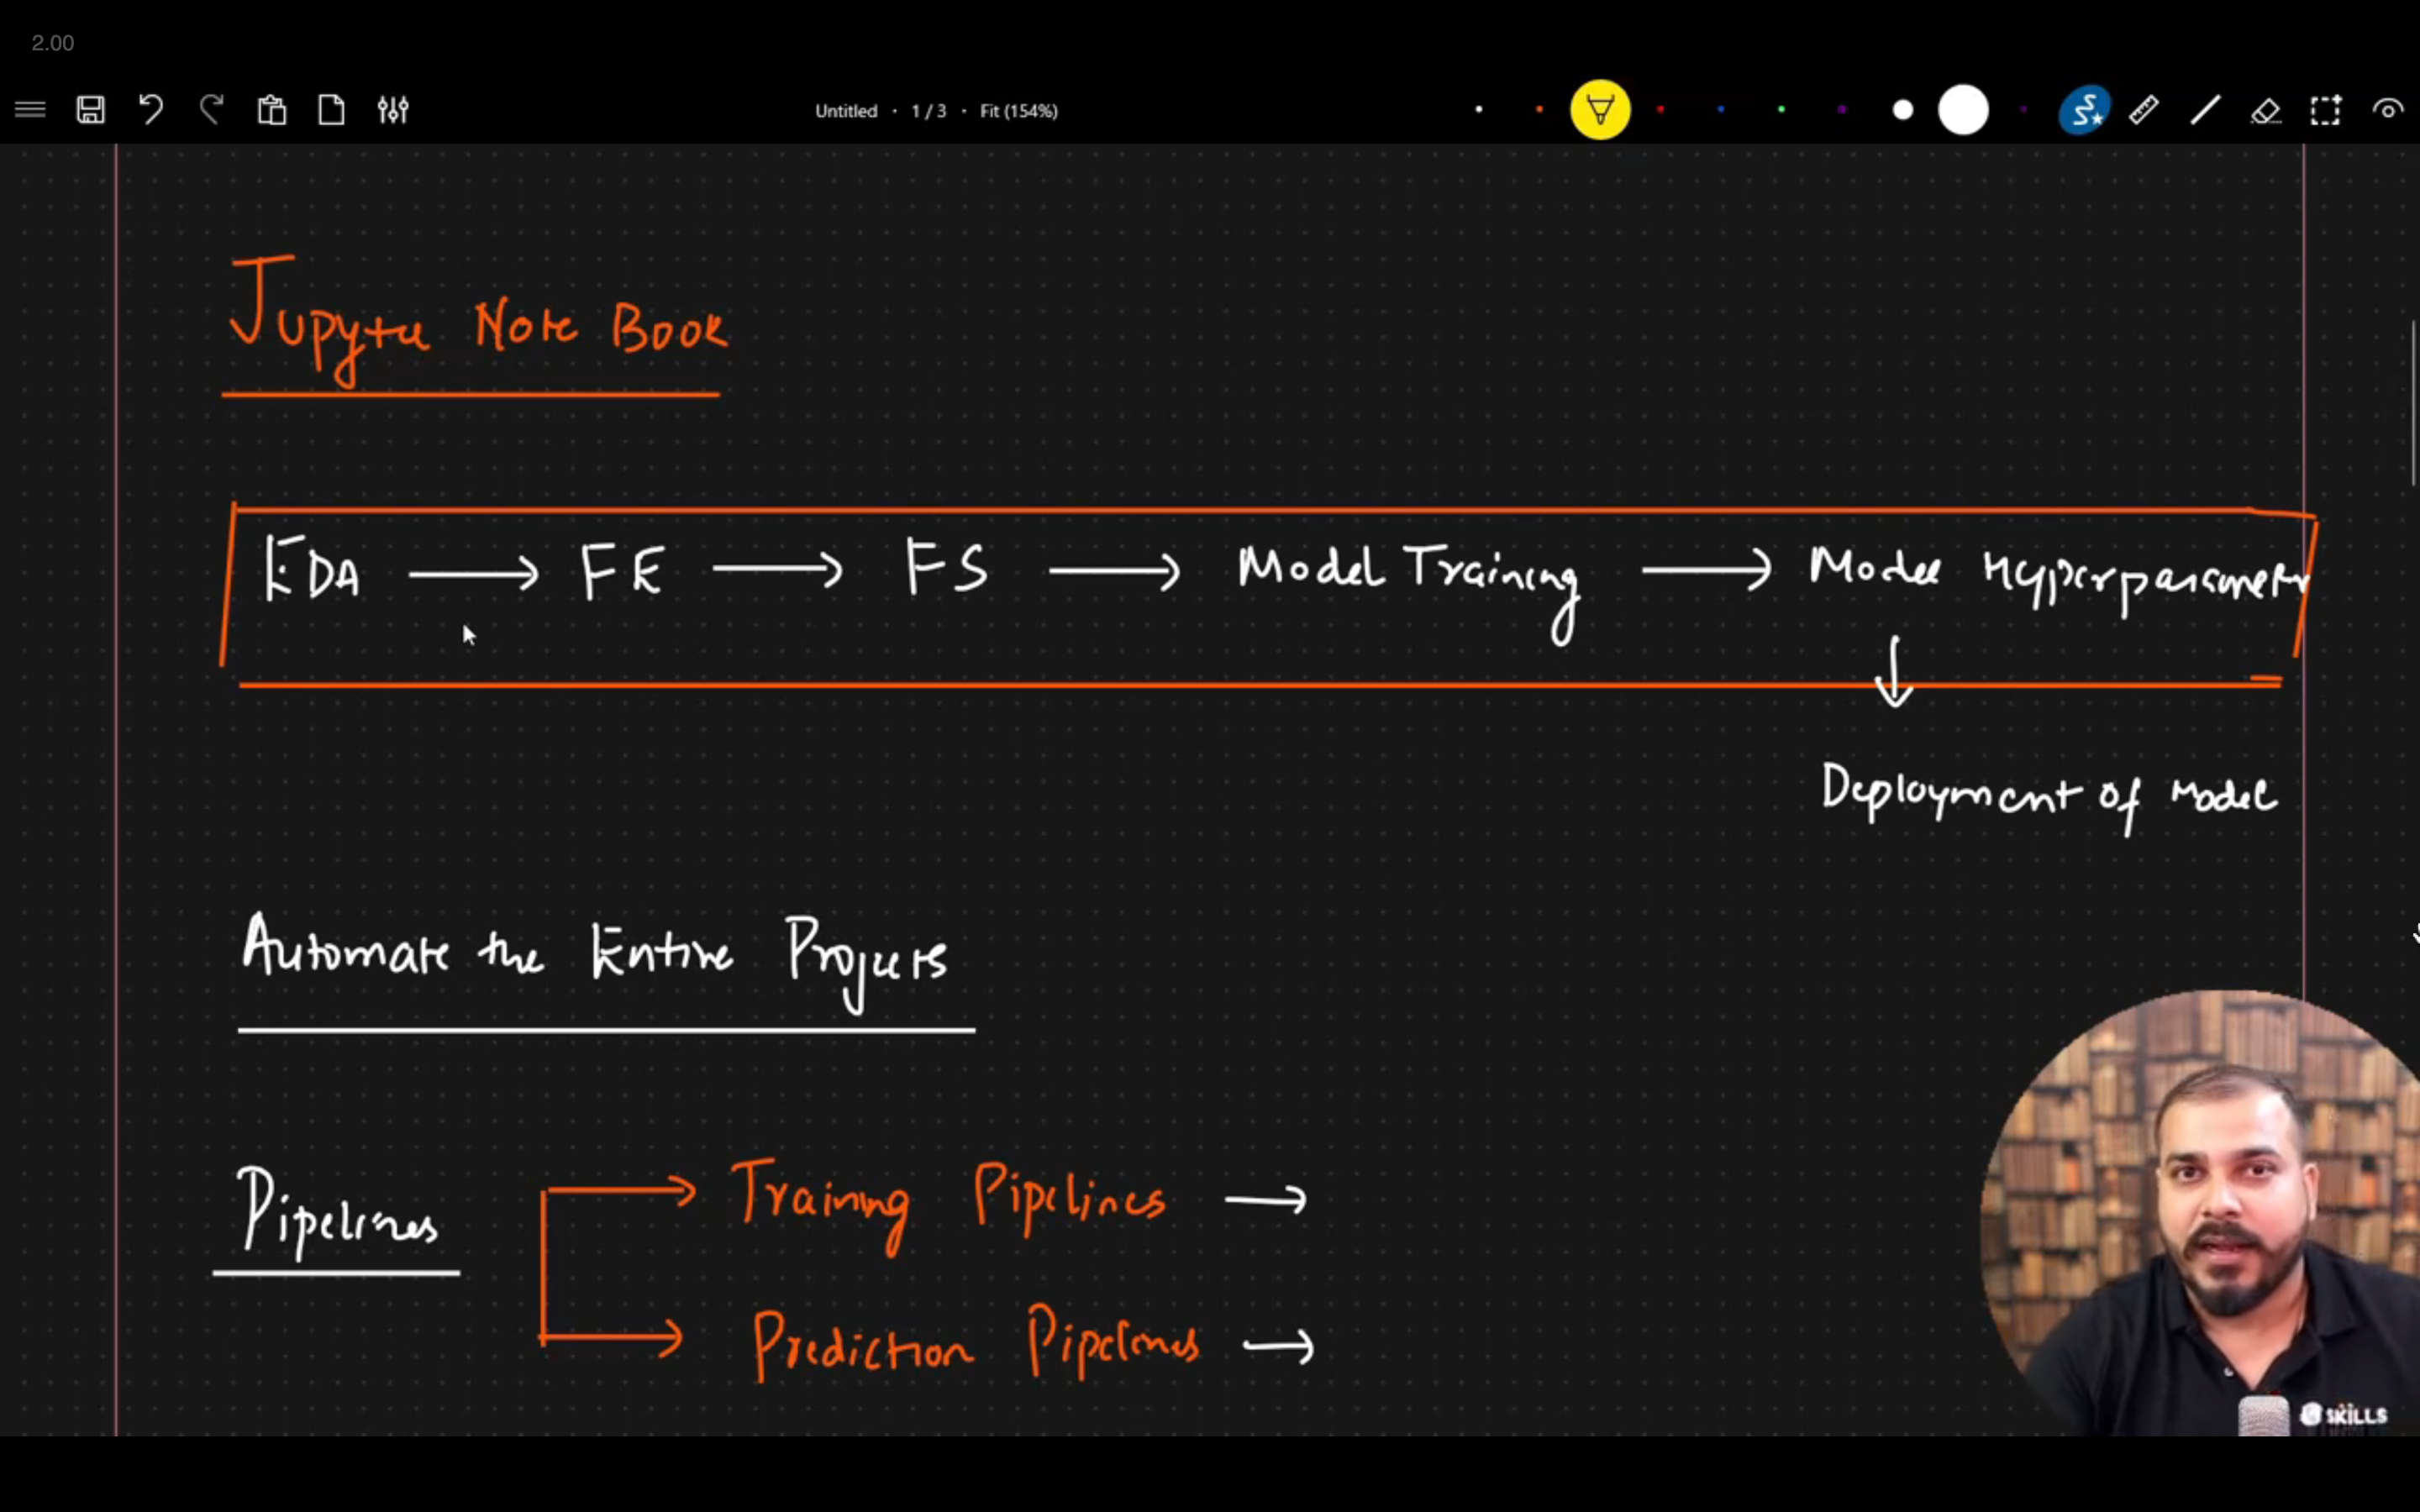 2.00
Untitled · 1 / 3 · Fit (154%)
Jupyter Note Book
EDA → FE → FS → Model Training → Model Hyperparameter
↓
Deployment of Model
Automate the Entire Projects
Pipelines → Training Pipelines →
→ Prediction Pipelines →
SKILLS